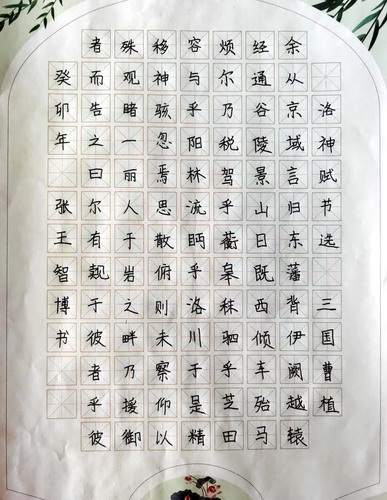 洛神赋节选 三国曹植
余从京域言归东藩背伊阙越辕
经通谷陵景山日既西倾车殆马
烦尔乃税驾乎蘅皋秣驷乎芝田
容与乎阳林流眄乎洛川于是精
移神骇忽焉思散俯则未察仰以
殊观睹一丽人于岩之畔乃援御
者而告之曰尔有觌于彼者乎彼
癸卯年 张王智博书